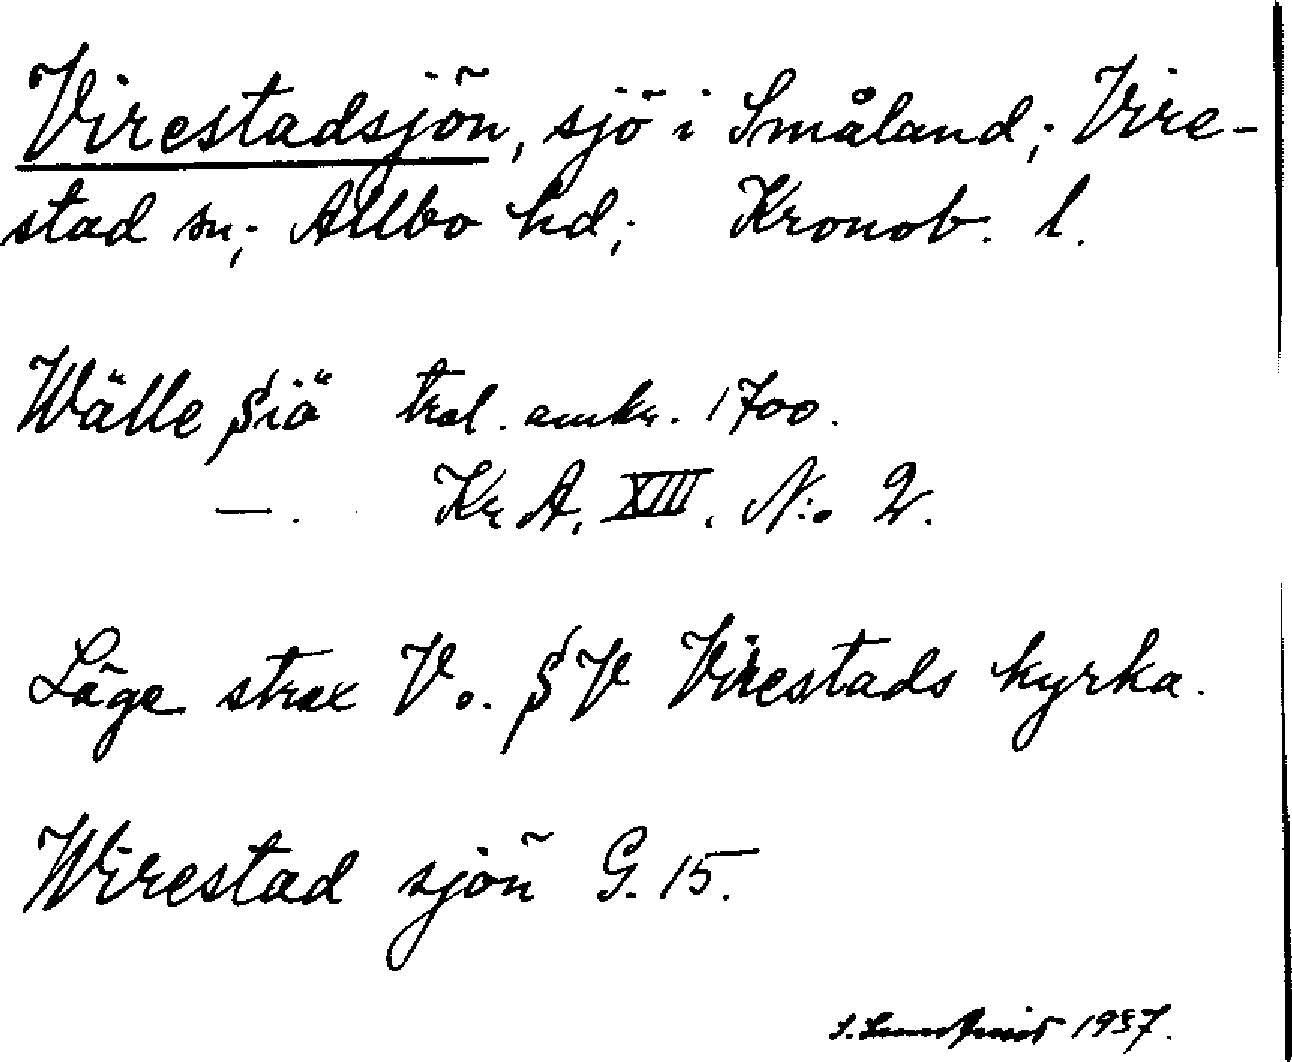 Virestadsjön, sjö i Småland; Vire-
stad sn; Allbo hd; Kronob. l.
Wälle Siö tral. omkr. 1700.
—. Kr A, XIII, N:o 2.
Läge strax V. o. SV Virestads kyrka.
Wirestad sjön G. 15.
1937.